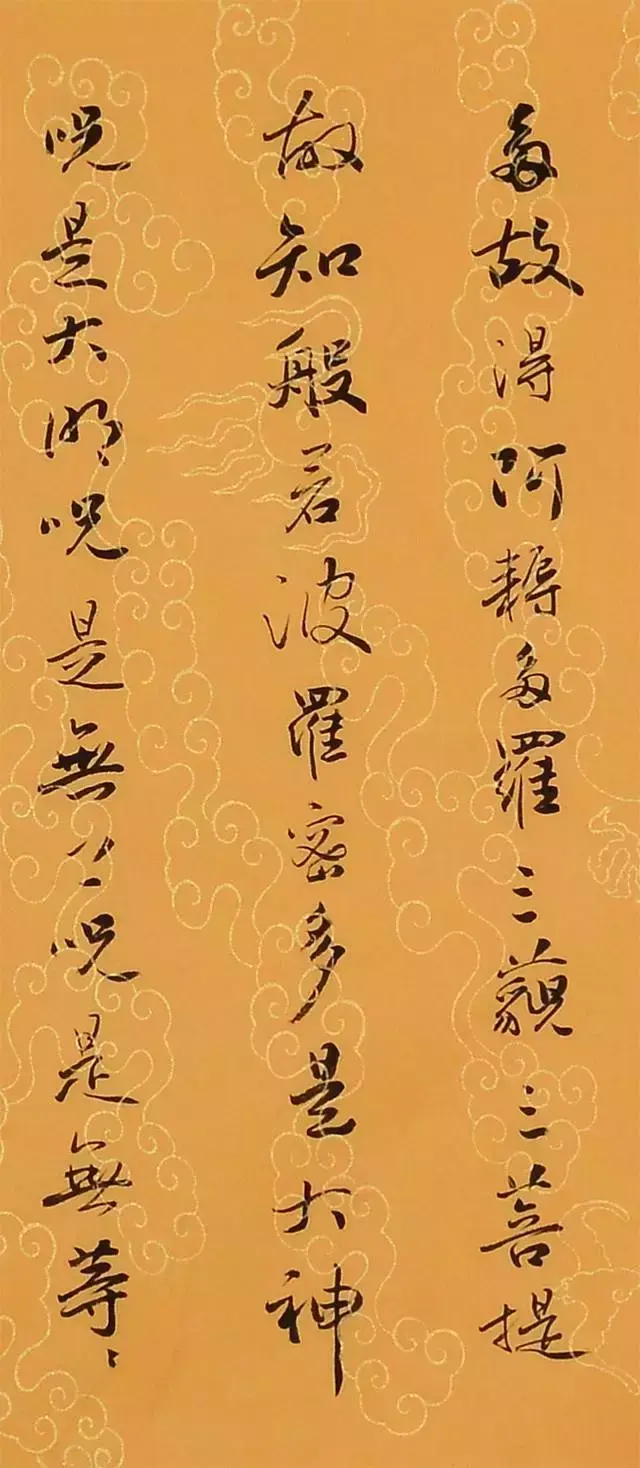 多故得阿耨多羅三藐三菩提
故知般若波羅密多是大神
呪是大明呪是無上呪是無等々